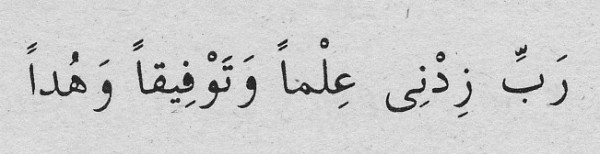 رَبِّ زِدْنِى عِلْماً وَتَوْفِيقاً وَهُداً